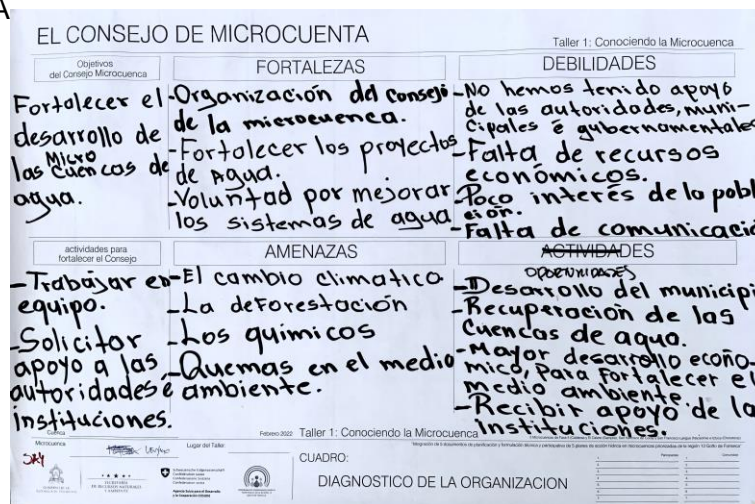 A
EL CONSEJO DE MICROCUENTA
Taller 1: Conociendo la Microcuenca
Objetivos
del Consejo Microcuenca
Fortalecer el
desarrollo de
Micro
las Cuencas de
agua.
FORTALEZAS
-Organización del consejo
de la microcuenca.
-Fortalecer los proyectos
de Agua.
-Voluntad por mejorar
los sistemas de agua
DEBILIDADES
-No hemos tenido apoyo
de las autoridades, muni-
cipales é gubernamentales
-Falta de recursos
económicos.
-Poco interés de la pobl
ción.
-Falta de comunicació
actividades para
fortalecer el Consejo
-Trabajar en
equipo.
-Solicitar
apoyo a las
autoridades é
instituciones.
AMENAZAS
-El cambio climatico
-La deforestación
-Los químicos
-Quemas en el medio
ambiente.
ACTIVIDADES
OPORTUNIDADES
-Desarrollo del municipi
-Recuperación de las
Cuencas de agua.
-Mayor desarrollo econo-
mico, para fortalecer el
medio ambiente.
-Recibir apoyo de la
Instituciones.
Cuenca
Microcuenca
Lugar del Taller:
Febrero 2022
Taller 1: Conociendo la Microcuenca
CUADRO:
DIAGNOSTICO DE LA ORGANIZACION